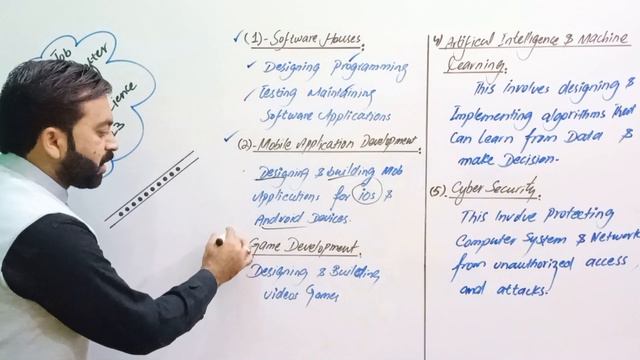 Job
ience
(1)- Software Houses.
Designing Programming
Testing Maintaining
Software Applications
(2)- Mobile Application Development.
Designing & building Mob
Applications for ios &
Android Devices.
Game Development.
Designing & Building
videos Games
4) Artifical Intelligence & Machine
Learning.
This involves designing &
Implementing algorithms that
Can Learn from Data &
make Decision.
(5). Cyber Security.
This Involve Protecting
Computer System & Network
from unauthorized access
and attacks.